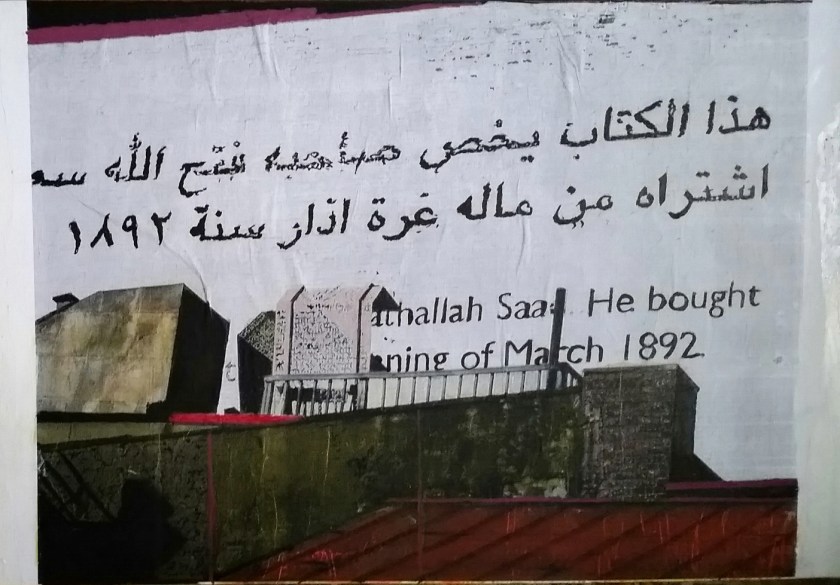 هذا الكتاب يخص صاحبه فتح الله سع
اشتراه من ماله غرة اذار سنة ١٨٩٢
athallah Saad. He bought
t
ning of March 1892.